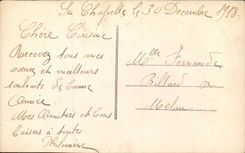 La Chapelle, le 30 Decembre 1918
Chère Cousine
Recevez tous mes
vœux et meilleurs
souhaits de bonne
Année
Mes Amitiés et Bons
baisers à toutes
Mlle Fernande
Billard à
Melun